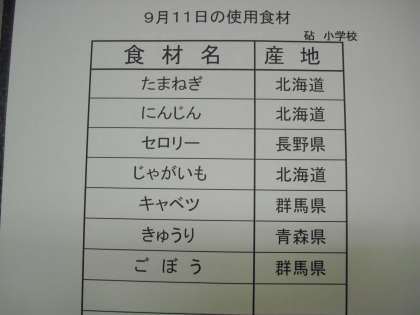 9月11日の使用食材
砧 小学校
食材名 産地
たまねぎ 北海道
にんじん 北海道
セロリー 長野県
じゃがいも 北海道
キャベツ 群馬県
きゅうり 青森県
ごぼう 群馬県